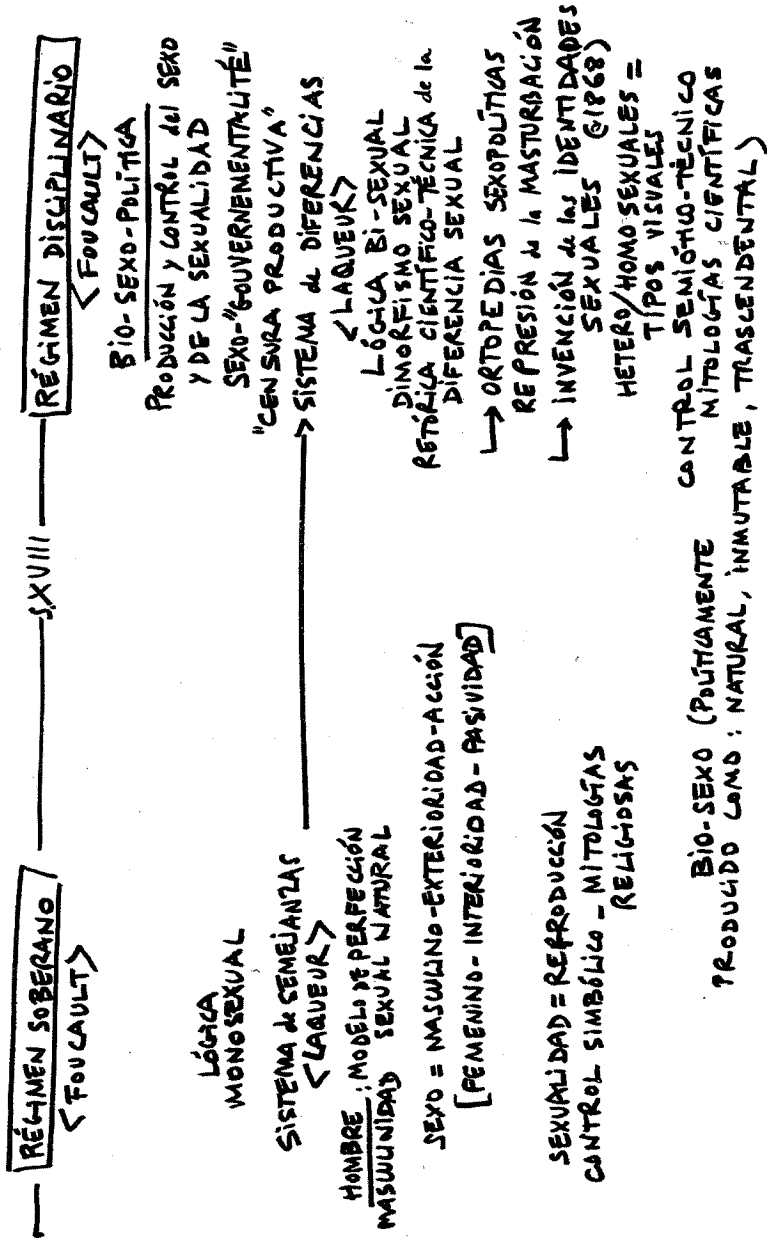 RÉGIMEN SOBERANO
<FOUCAULT>
LÓGICA
MONOSEXUAL
SISTEMA de SEMEJANZAS
<LAQUEUR>
HOMBRE: MODELO DE PERFECCIÓN
MASCULINIDAD SEXUAL NATURAL
SEXO = MASCULINO-EXTERIORIDAD-ACCIÓN
[FEMENINO-INTERIORIDAD-PASIVIDAD]
SEXUALIDAD = REPRODUCCIÓN
CONTROL SIMBÓLICO - MITOLOGÍAS
RELIGIOSAS
S.XVIII
RÉGIMEN DISCIPLINARIO
<FOUCAULT>
BIO-SEXO-POLÍTICA
PRODUCCIÓN y CONTROL del SEXO
Y DE LA SEXUALIDAD
SEXO-"GOUVERNEMENTALITÉ"
"CENSURA PRODUCTIVA"
SISTEMA de DIFERENCIAS
<LAQUEUR>
LÓGICA BI-SEXUAL
DIMORFISMO SEXUAL
RETÓRICA CIENTÍFICO-TÉCNICA de la
DIFERENCIA SEXUAL
→ ORTOPEDIAS SEXOPOLÍTICAS
REPRESIÓN de la MASTURBACIÓN
→ INVENCIÓN de las IDENTIDADES
SEXUALES (@1868)
HETERO/HOMOSEXUALES =
TIPOS VISUALES
CONTROL SEMIÓTICO-TÉCNICO
MITOLOGÍAS CIENTÍFICAS
BIO-SEXO (POLÍTICAMENTE
PRODUCIDO COMO: NATURAL, INMUTABLE, TRASCENDENTAL)